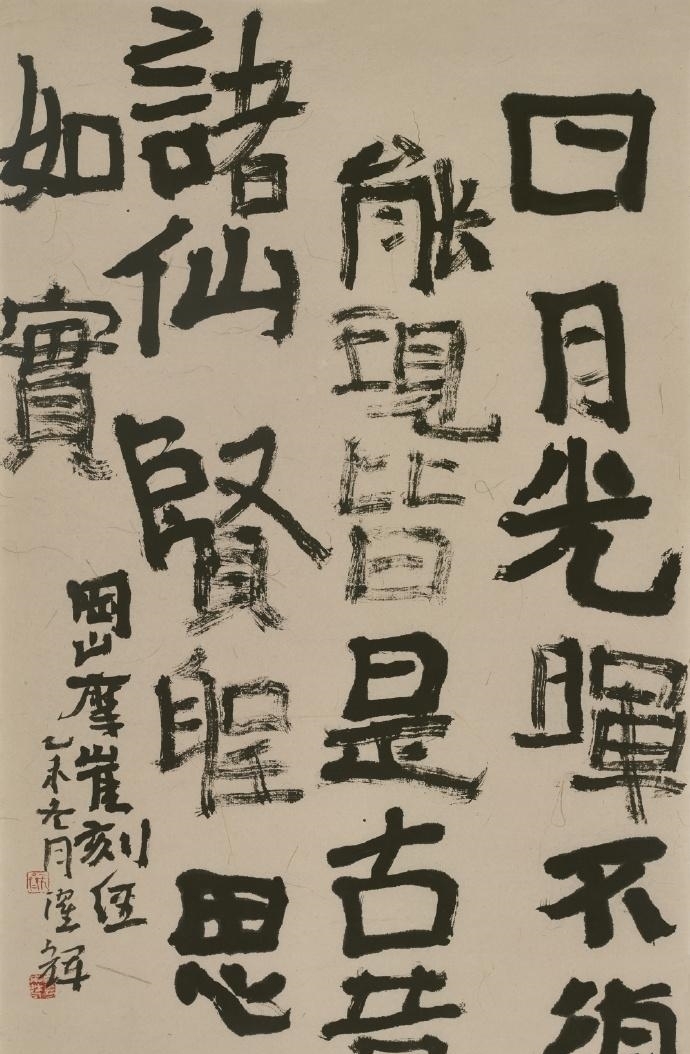 日月光暉不復
能現皆是古昔
諸仙賢聖思
如實
岡山摩崖刻經
乙未冬月